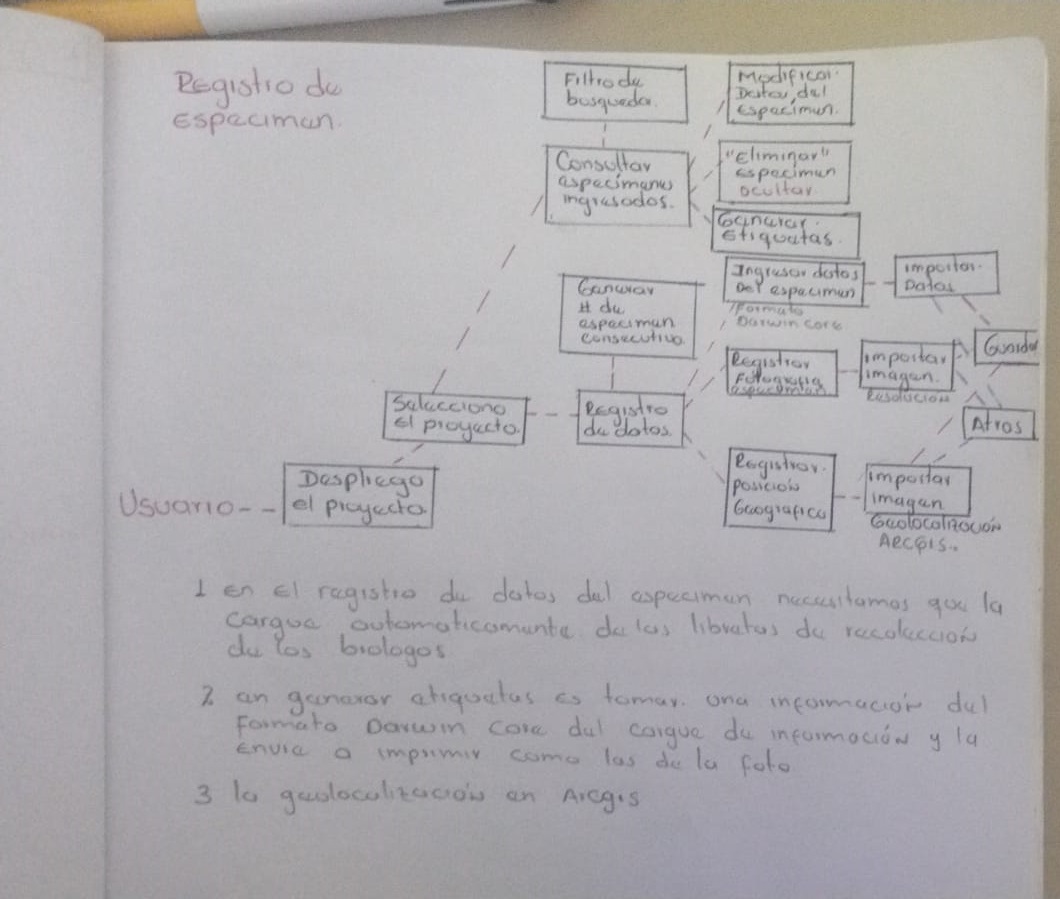 Registro de
especimen.
Filtro de
busqueda.
Modificar
Datos del
especimen.
Consultar
especimenes
ingresados.
"Eliminar"
especimen
ocultar
Generar
Etiquetas.
Generar
# de
especimen
consecutivo
Ingresar datos
Del especimen
Formato
Darwin core
importar
Datos
Guardar
Registrar
Fotografia
especimen
importar
imagen.
Resolución
Atras
Selecciono
el proyecto.
Registro
de datos.
Registrar
posición
Geografica
importar
imagen
Geolocalización
ARCGIS.
Usuario
Despliego
el proyecto.
1 en el registro de datos del especimen necesitamos que la
cargue automaticamente de las libretas de recolección
de los biologos
2 en generar etiquetas es tomar una información del
Formato Darwin Core del cargue de información y la
Envie a imprimir como las de la foto
3 la geolocalización en Arcgis